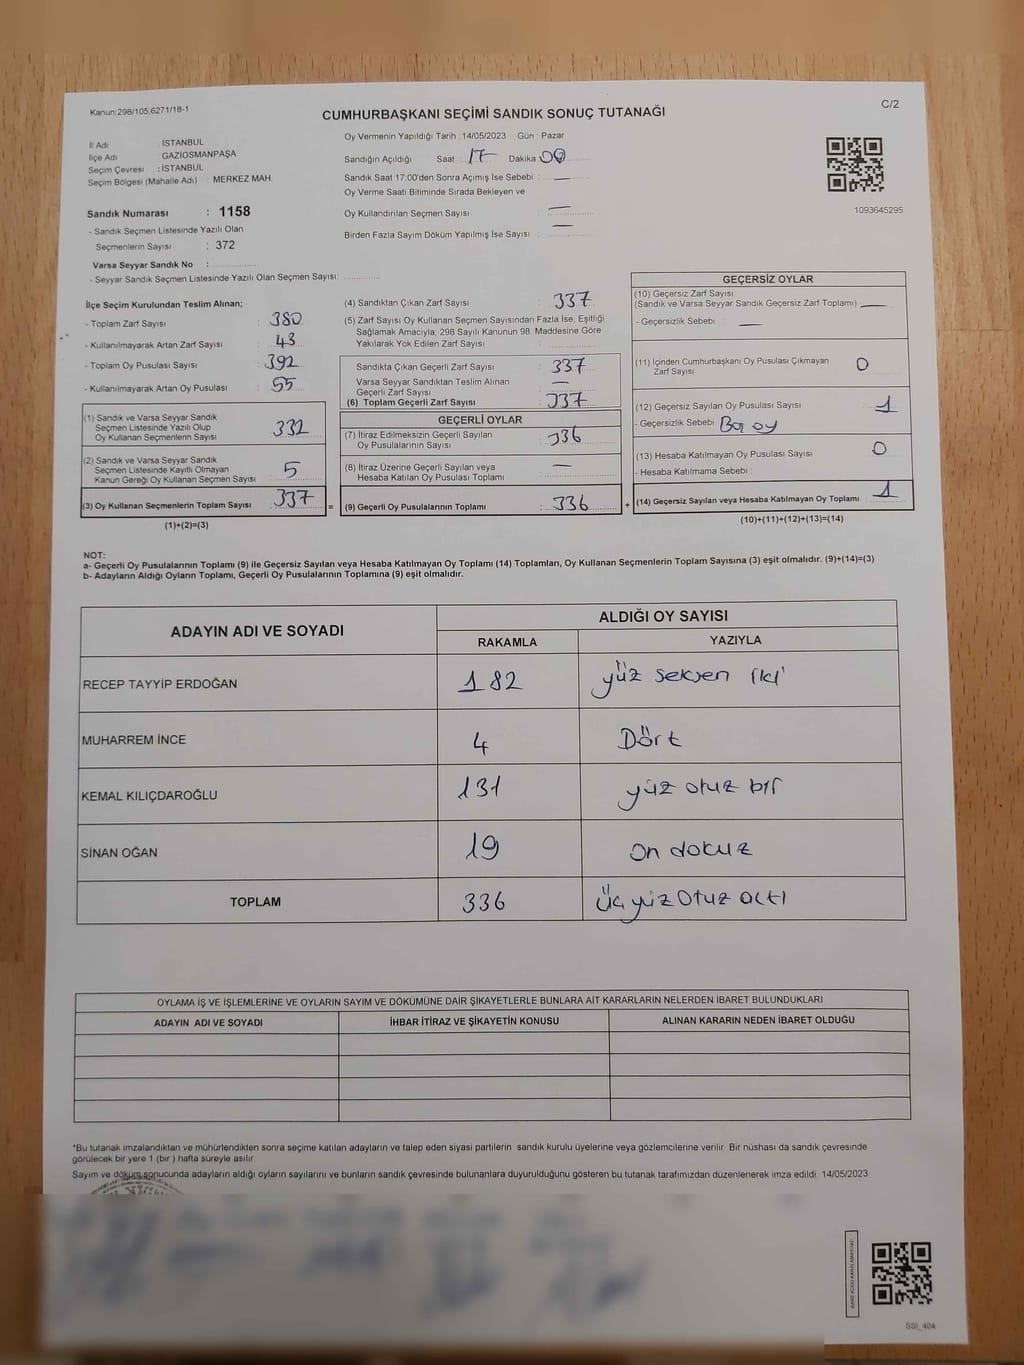 Kanun:298/105,6271/18-1
C/2
CUMHURBAŞKANI SEÇİMİ SANDIK SONUÇ TUTANAĞI
İl Adı : İSTANBUL
İlçe Adı GAZİOSMANPAŞA
Seçim Çevresi : İSTANBUL
Seçim Bölgesi (Mahalle Adı) : MERKEZ MAH.
Sandık Numarası : 1158
- Sandık Seçmen Listesinde Yazılı Olan
Seçmenlerin Sayısı : 372
Varsa Seyyar Sandık No :
- Seyyar Sandık Seçmen Listesinde Yazılı Olan Seçmen Sayısı:
Oy Vermenin Yapıldığı Tarih 14/05/2023 Gün Pazar
Sandığın Açıldığı Saat 17 Dakika 00
Sandık Saat 17:00'den Sonra Açımış İse Sebebi : —
Oy Verme Saati Bitiminde Sırada Bekleyen ve
Oy Kullandırılan Seçmen Sayısı : —
Birden Fazla Sayım Döküm Yapılmış İse Sayısı : —
1093645295
İlçe Seçim Kurulundan Teslim Alınan;
- Toplam Zarf Sayısı : 380
- Kullanılmayarak Artan Zarf Sayısı : 43
- Toplam Oy Pusulası Sayısı : 392
- Kullanılmayarak Artan Oy Pusulası : 55
(1) Sandık ve Varsa Seyyar Sandık
Seçmen Listesinde Yazılı Olup
Oy Kullanan Seçmenlerin Sayısı : 332
(2) Sandık ve Varsa Seyyar Sandık
Seçmen Listesinde Kayıtlı Olmayan
Kanun Gereği Oy Kullanan Seçmen Sayısı : 5
(3) Oy Kullanan Seçmenlerin Toplam Sayısı : 337
(1)+(2)=(3)
(4) Sandıktan Çıkan Zarf Sayısı : 337
(5) Zarf Sayısı Oy Kullanan Seçmen Sayısından Fazla İse, Eşitliği
Sağlamak Amacıyla, 298 Sayılı Kanunun 98. Maddesine Göre
Yakılarak Yok Edilen Zarf Sayısı :
Sandıkta Çıkan Geçerli Zarf Sayısı : 337
Varsa Seyyar Sandıktan Teslim Alınan
Geçerli Zarf Sayısı : —
(6) Toplam Geçerli Zarf Sayısı : 337
GEÇERLİ OYLAR
(7) İtiraz Edilmeksizin Geçerli Sayılan
Oy Pusulalarının Sayısı : 336
(8) İtiraz Üzerine Geçerli Sayılan veya
Hesaba Katılan Oy Pusulası Toplamı : —
= (9) Geçerli Oy Pusulalarının Toplamı : 336
GEÇERSİZ OYLAR
(10) Geçersiz Zarf Sayısı
(Sandık ve Varsa Seyyar Sandık Geçersiz Zarf Toplamı) : —
- Geçersizlik Sebebi : —
(11) İçinden Cumhurbaşkanı Oy Pusulası Çıkmayan
Zarf Sayısı : 0
(12) Geçersiz Sayılan Oy Pusulası Sayısı : 1
- Geçersizlik Sebebi Boş oy
(13) Hesaba Katılmayan Oy Pusulası Sayısı : 0
- Hesaba Katılmama Sebebi :
+ (14) Geçersiz Sayılan veya Hesaba Katılmayan Oy Toplamı : 1
(10)+(11)+(12)+(13)=(14)
NOT:
a- Geçerli Oy Pusulalarının Toplamı (9) ile Geçersiz Sayılan veya Hesaba Katılmayan Oy Toplamı (14) Toplamları, Oy Kullanan Seçmenlerin Toplam Sayısına (3) eşit olmalıdır. (9)+(14)=(3)
b- Adayların Aldığı Oyların Toplamı, Geçerli Oy Pusulalarının Toplamına (9) eşit olmalıdır.
ADAYIN ADI VE SOYADI ALDIĞI OY SAYISI
RAKAMLA YAZIYLA
RECEP TAYYİP ERDOĞAN 182 yüz seksen iki
MUHARREM İNCE 4 Dört
KEMAL KILIÇDAROĞLU 131 yüz otuz bir
SİNAN OĞAN 19 on dokuz
TOPLAM 336 Üçyüz Otuz altı
OYLAMA İŞ VE İŞLEMLERİNE VE OYLARIN SAYIM VE DÖKÜMÜNE DAİR ŞİKAYETLERLE BUNLARA AİT KARARLARIN NELERDEN İBARET BULUNDUKLARI
ADAYIN ADI VE SOYADI İHBAR İTİRAZ VE ŞİKAYETİN KONUSU ALINAN KARARIN NEDEN İBARET OLDUĞU
*Bu tutanak imzalandıktan ve mühürlendikten sonra seçime katılan adayların ve talep eden siyasi partilerin sandık kurulu üyelerine veya gözlemcilerine verilir. Bir nüshası da sandık çevresinde
görülecek bir yere 1 (bir) hafta süreyle asılır
Sayım ve döküm sonucunda adayların aldığı oyların sayılarını ve bunların sandık çevresinde bulunanlara duyurulduğunu gösteren bu tutanak tarafımızdan düzenlenerek imza edildi. 14/05/2023
SSI_404